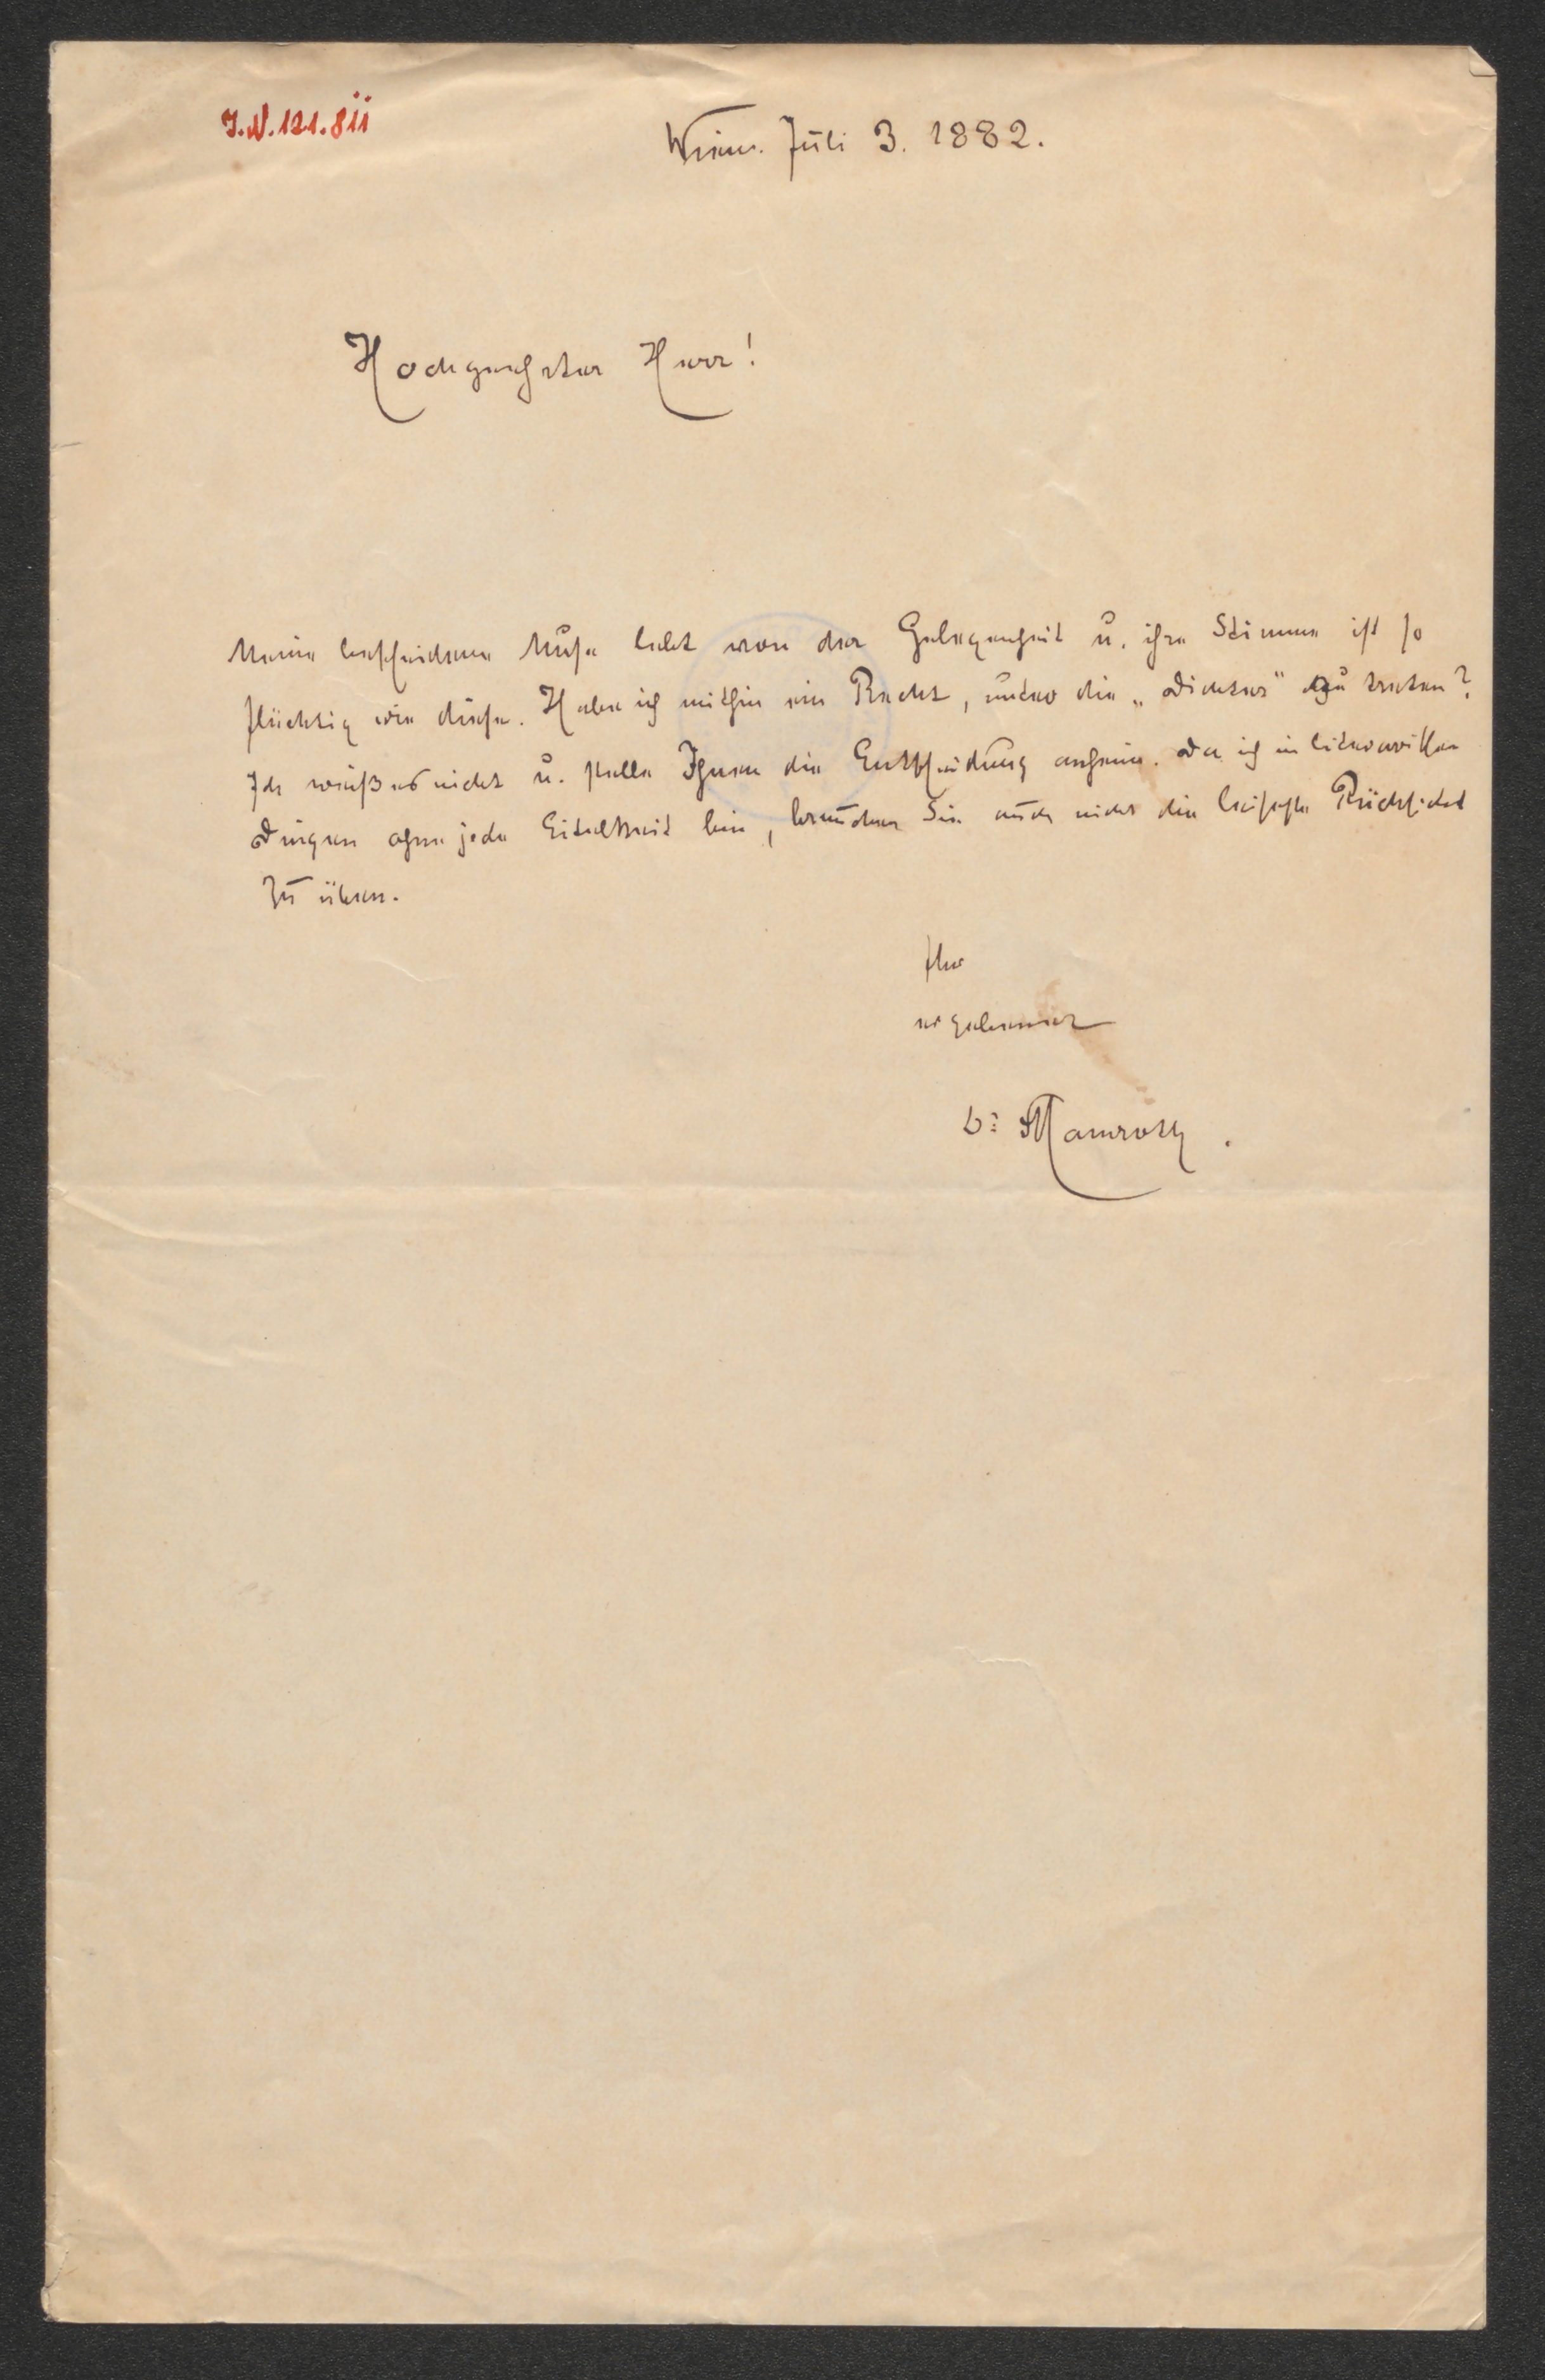 J.N. 121.811
Wien. Juli 3. 1882.
Hochgeehrter Herr!
Meine bescheidene Muse lebt von der Gelegenheit u. ihre Stimme ist so
flüchtig wie diese. Habe ich mithin ein Recht, unter die „Dichter" zu treten?
Ich weiß es nicht u. stelle Ihnen die Entscheidung anheim. Da ich in literarischen
Dingen ohne jede Eitelkeit bin, brauchen Sie auch nicht die leiseste Rücksicht
zu üben.
Ihr
ergebener
Dr. Mamroth.